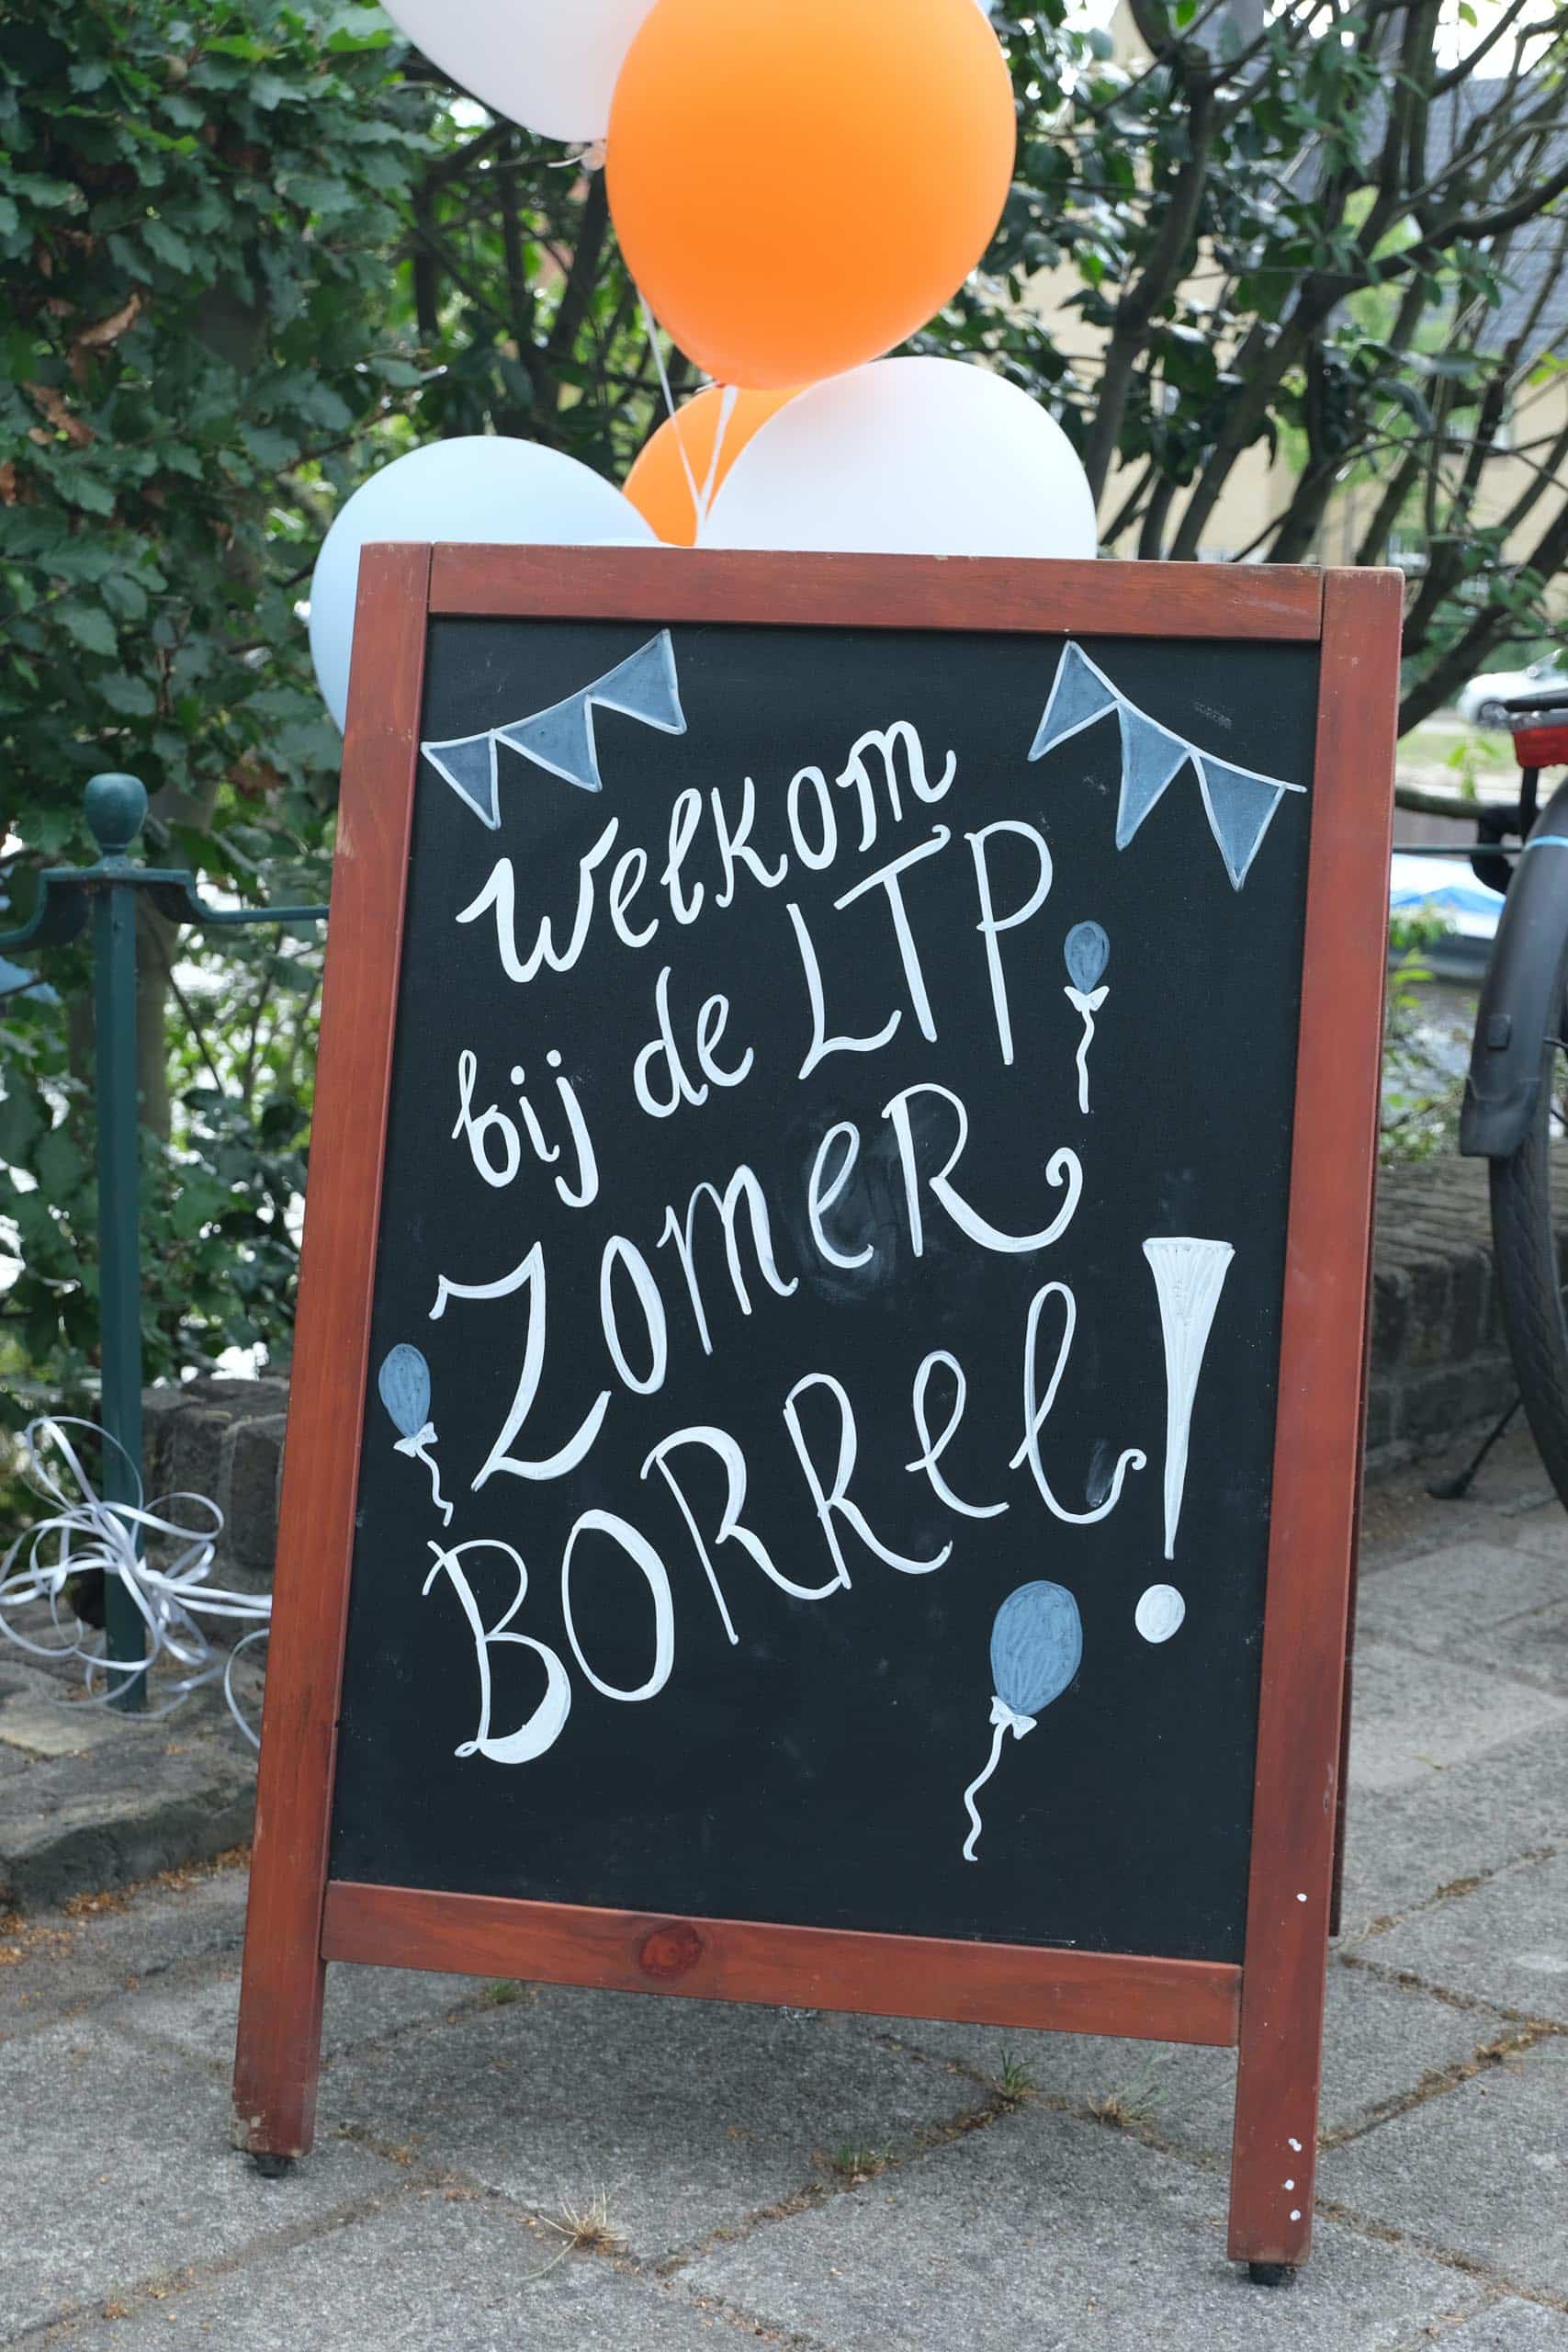 Welkom
bij de LTP
ZOMER
BORREL!